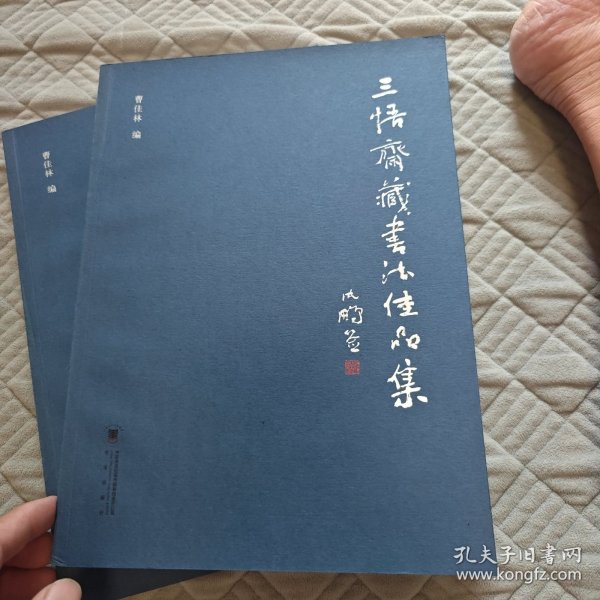 三悟齋藏书法佳品集
沈鹏签
曹佳林 编
曹佳林 编
孔夫子旧书网
www.kongfz.com